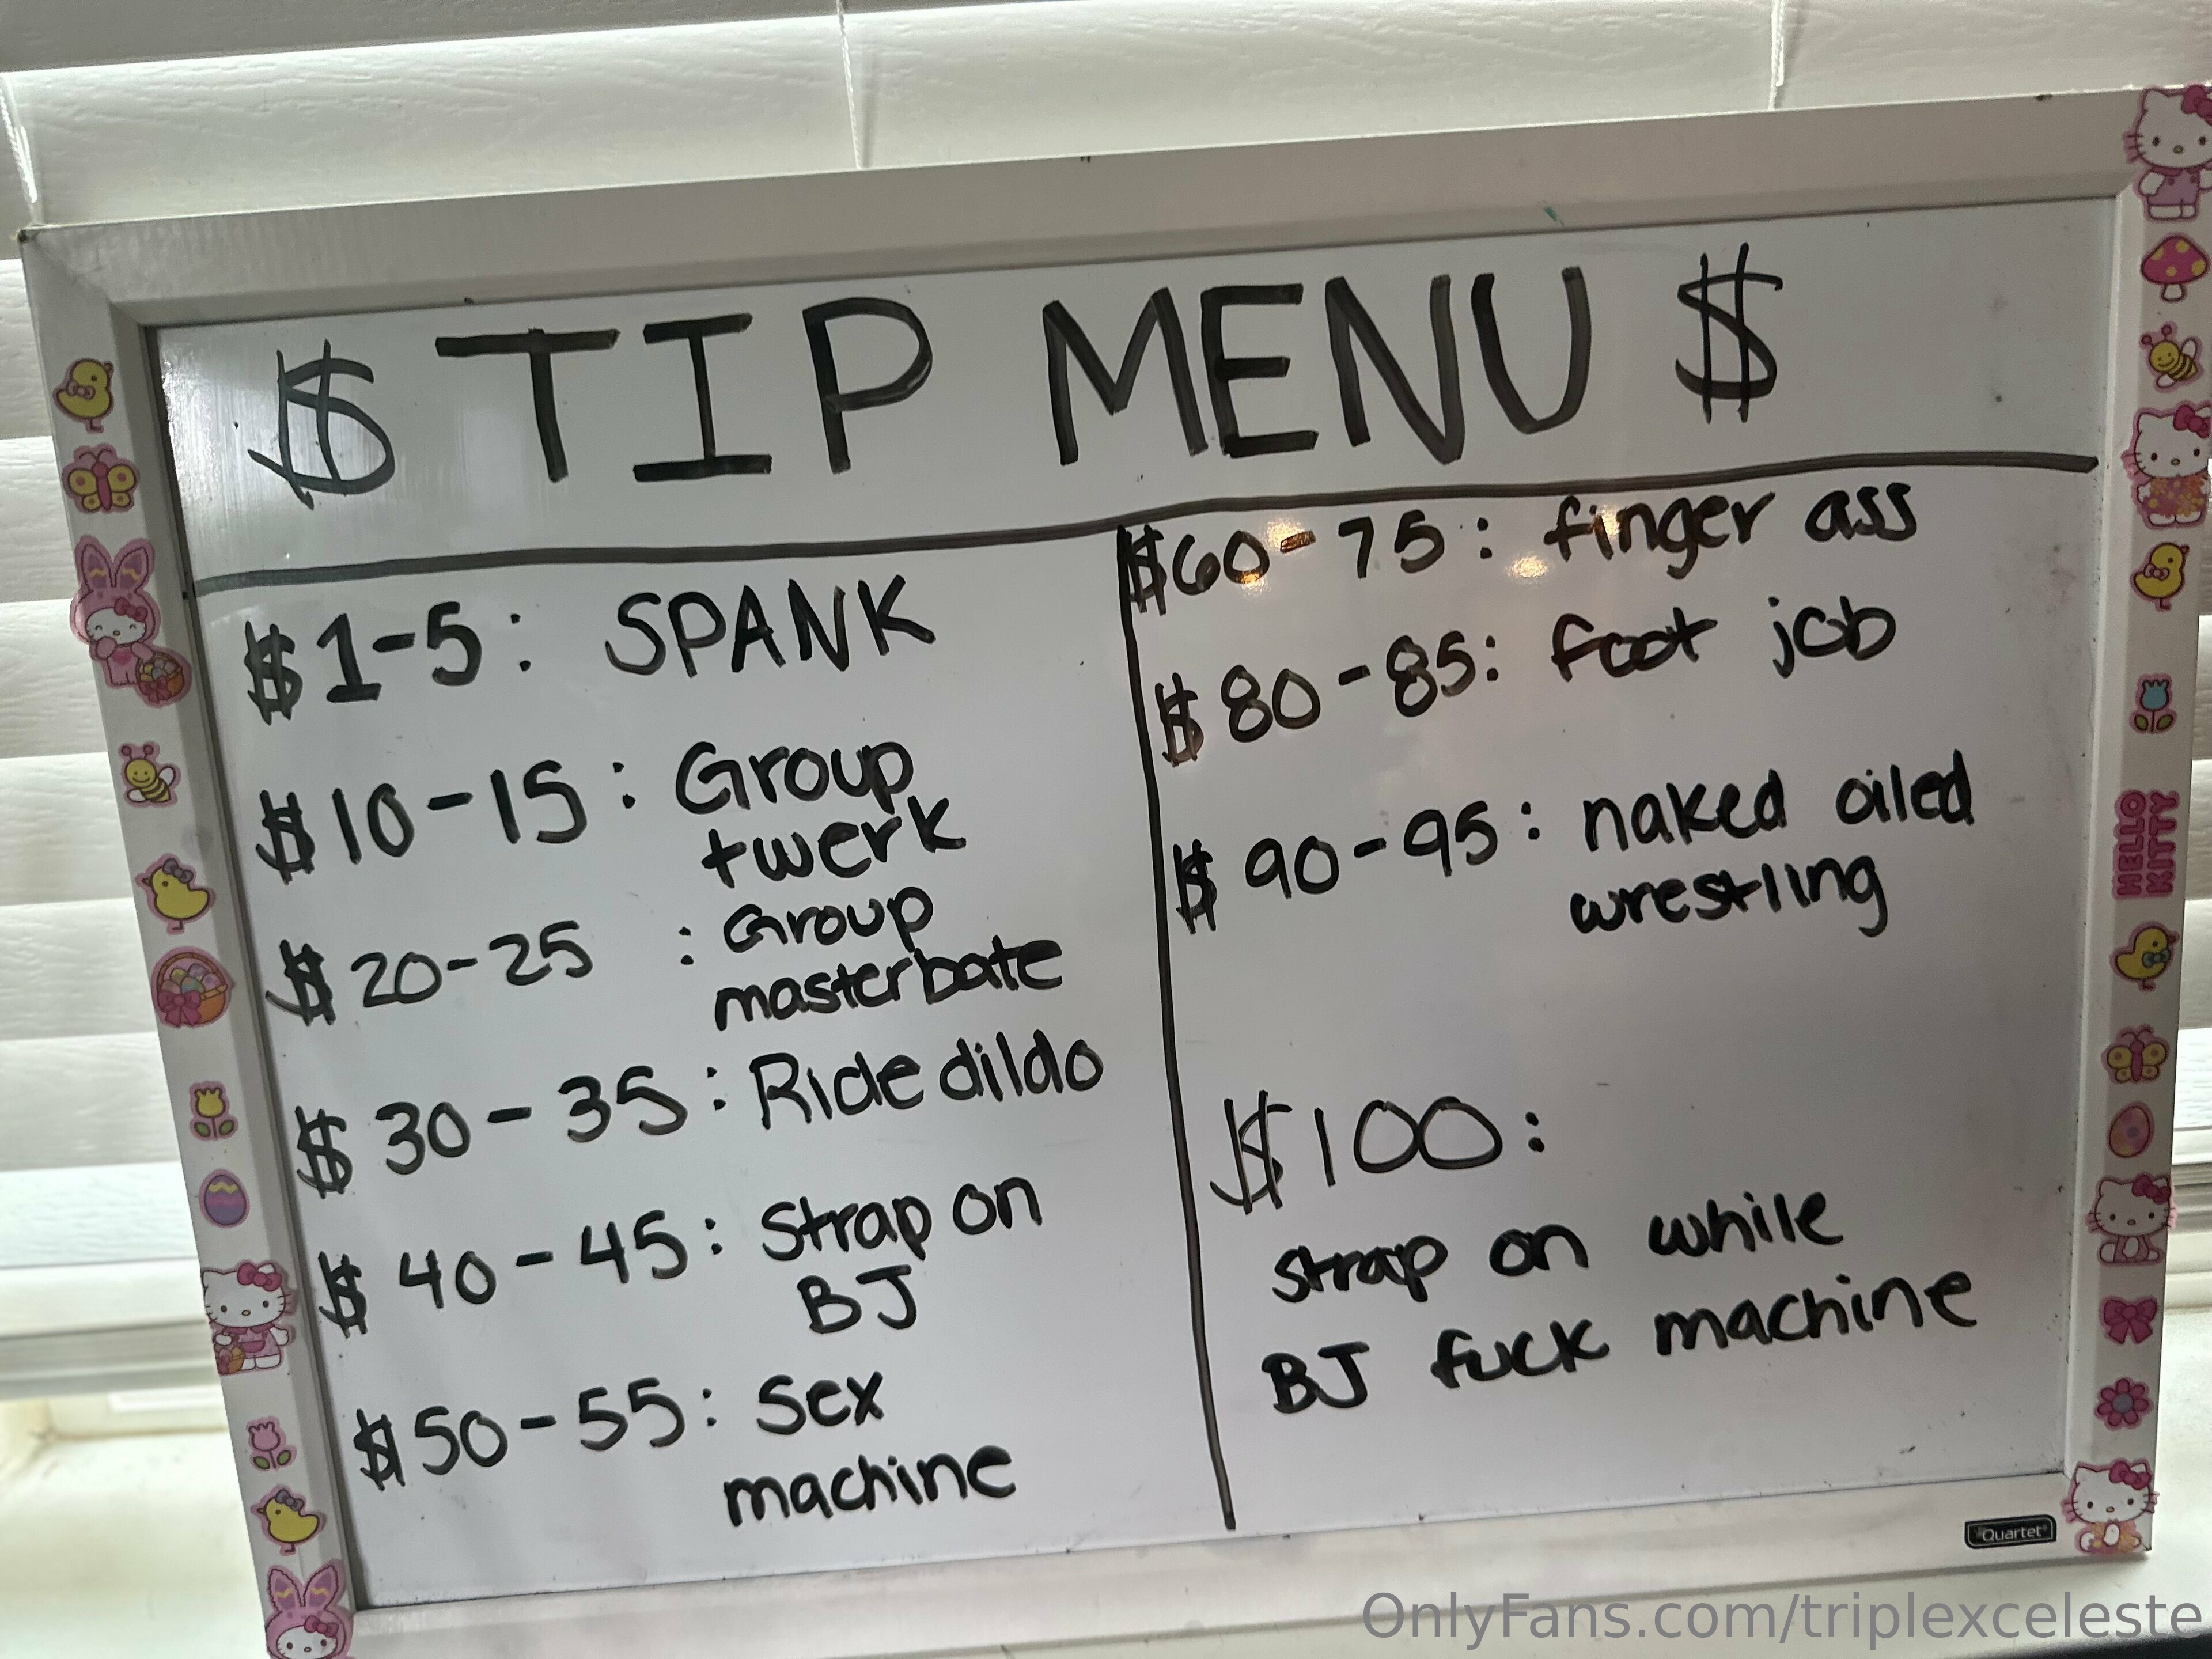 $ TIP MENU $
$1-5: SPANK
$10-15: Group
twerk
$20-25 : Group
masterbate
$30-35: Ride dildo
$40-45: Strap on
BJ
$50-55: Sex
machine
$60-75: finger ass
$80-85: foot job
$90-95: naked oiled
wrestling
$100:
strap on while
BJ fuck machine
HELLO
KITTY
Quartet
OnlyFans.com/triplexceleste